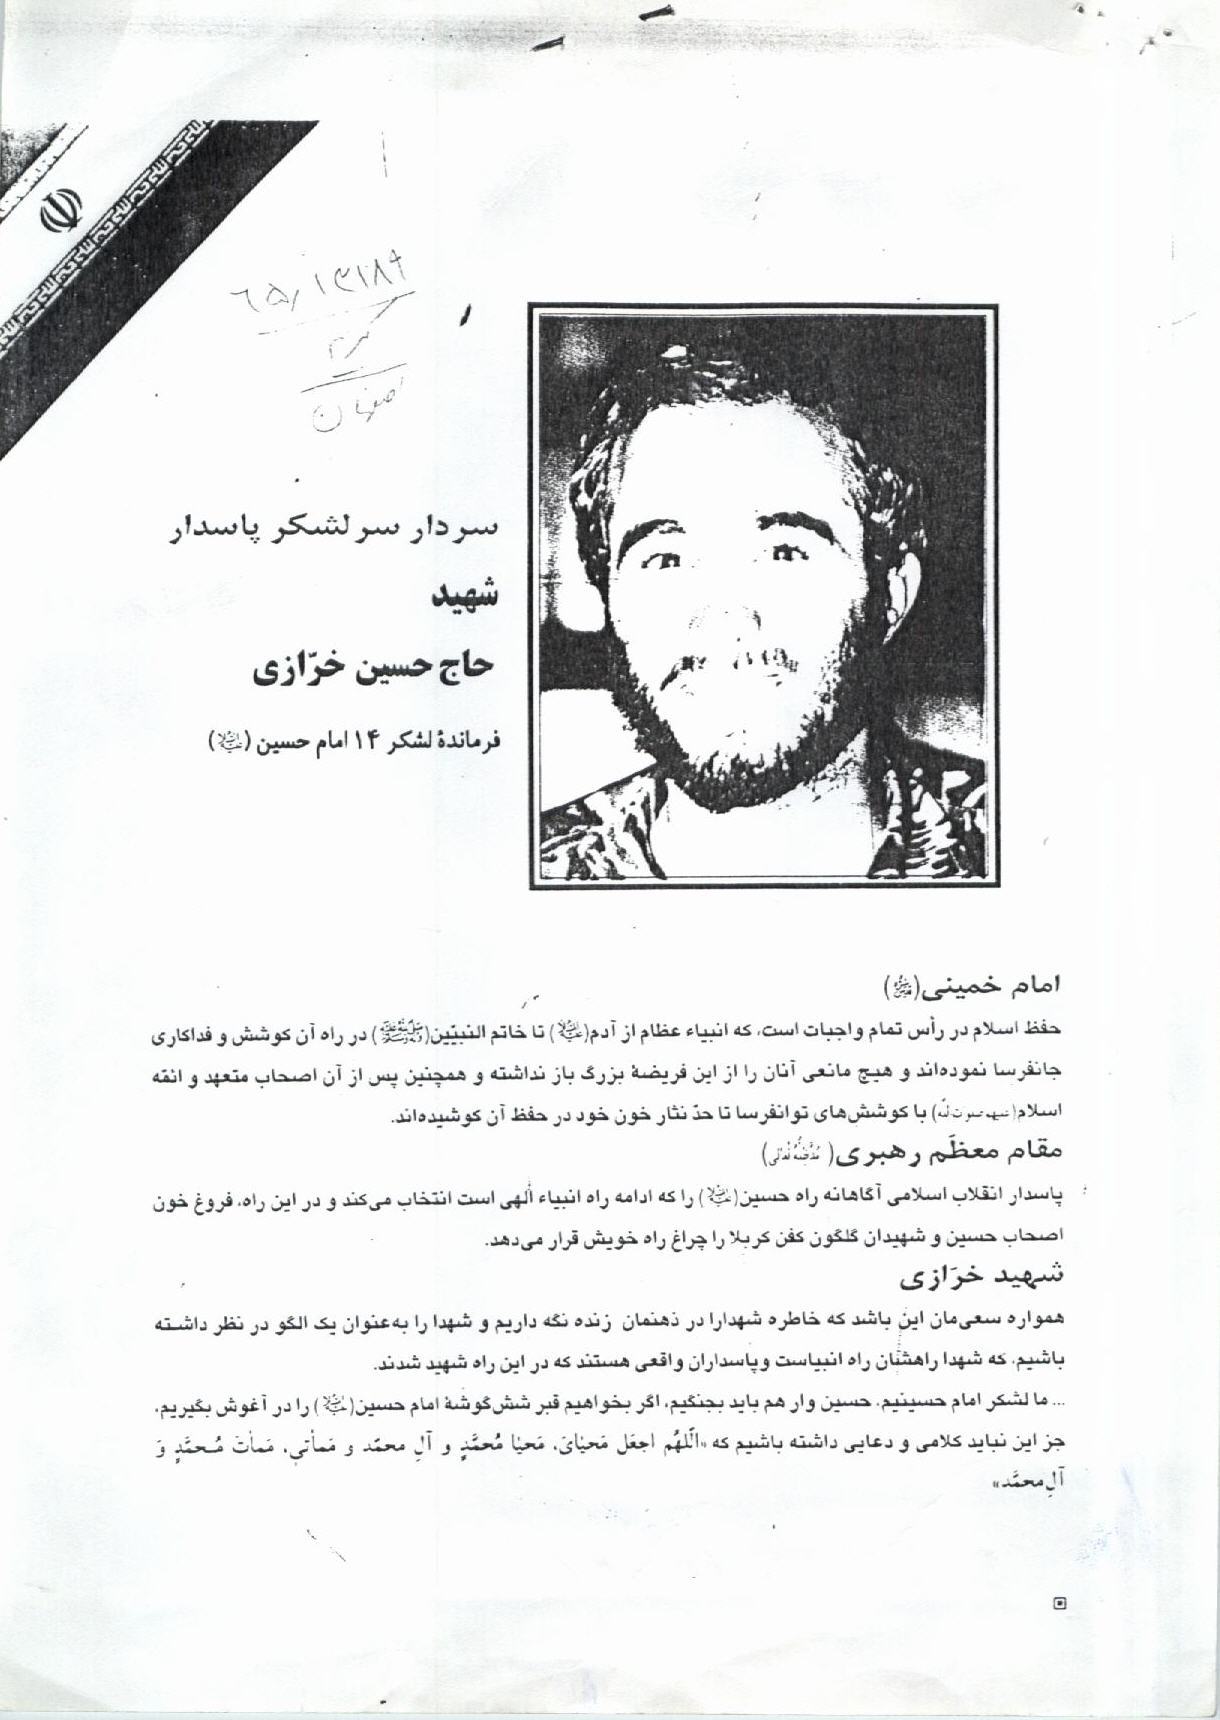 ۶۵/۱۳۱۸۹
اصفهان
سردار سرلشکر پاسدار
شهید
حاج حسین خرّازی
فرماندهٔ لشکر ۱۴ امام حسین (علیه‌السلام)
امام خمینی (قدس‌سره)
حفظ اسلام در رأس تمام واجبات است، که انبیاء عظام از آدم (علیه‌السلام) تا خاتم النبیّین (صلی‌الله‌علیه‌وآله) در راه آن کوشش و فداکاری
جانفرسا نموده‌اند و هیچ مانعی آنان را از این فریضهٔ بزرگ باز نداشته و همچنین پس از آن اصحاب متعهد و ائمه
اسلام با کوشش‌های توانفرسا تا حدّ نثار خون خود در حفظ آن کوشیده‌اند.
مقام معظّم رهبری (مدّظلّه‌العالی)
پاسدار انقلاب اسلامی آگاهانه راه حسین (علیه‌السلام) را که ادامه راه انبیاء الهی است انتخاب می‌کند و در این راه، فروغ خون
اصحاب حسین و شهیدان گلگون کفن کربلا را چراغ راه خویش قرار می‌دهد.
شهید خرّازی
همواره سعی‌مان این باشد که خاطره شهدارا در ذهنمان زنده نگه داریم و شهدا را به‌عنوان یک الگو در نظر داشته
باشیم، که شهدا راهشان راه انبیاست وپاسداران واقعی هستند که در این راه شهید شدند.
... ما لشکر امام حسینیم، حسین وار هم باید بجنگیم، اگر بخواهیم قبر شش‌گوشهٔ امام حسین (علیه‌السلام) را در آغوش بگیریم،
جز این نباید کلامی و دعایی داشته باشیم که «اللّهُم اجعَل مَحیایَ، مَحیا مُحمَّدٍ و آلِ محمّد و مَماتی، مَماتَ مُحمَّدٍ وَ
آلِ‌محمَّد»